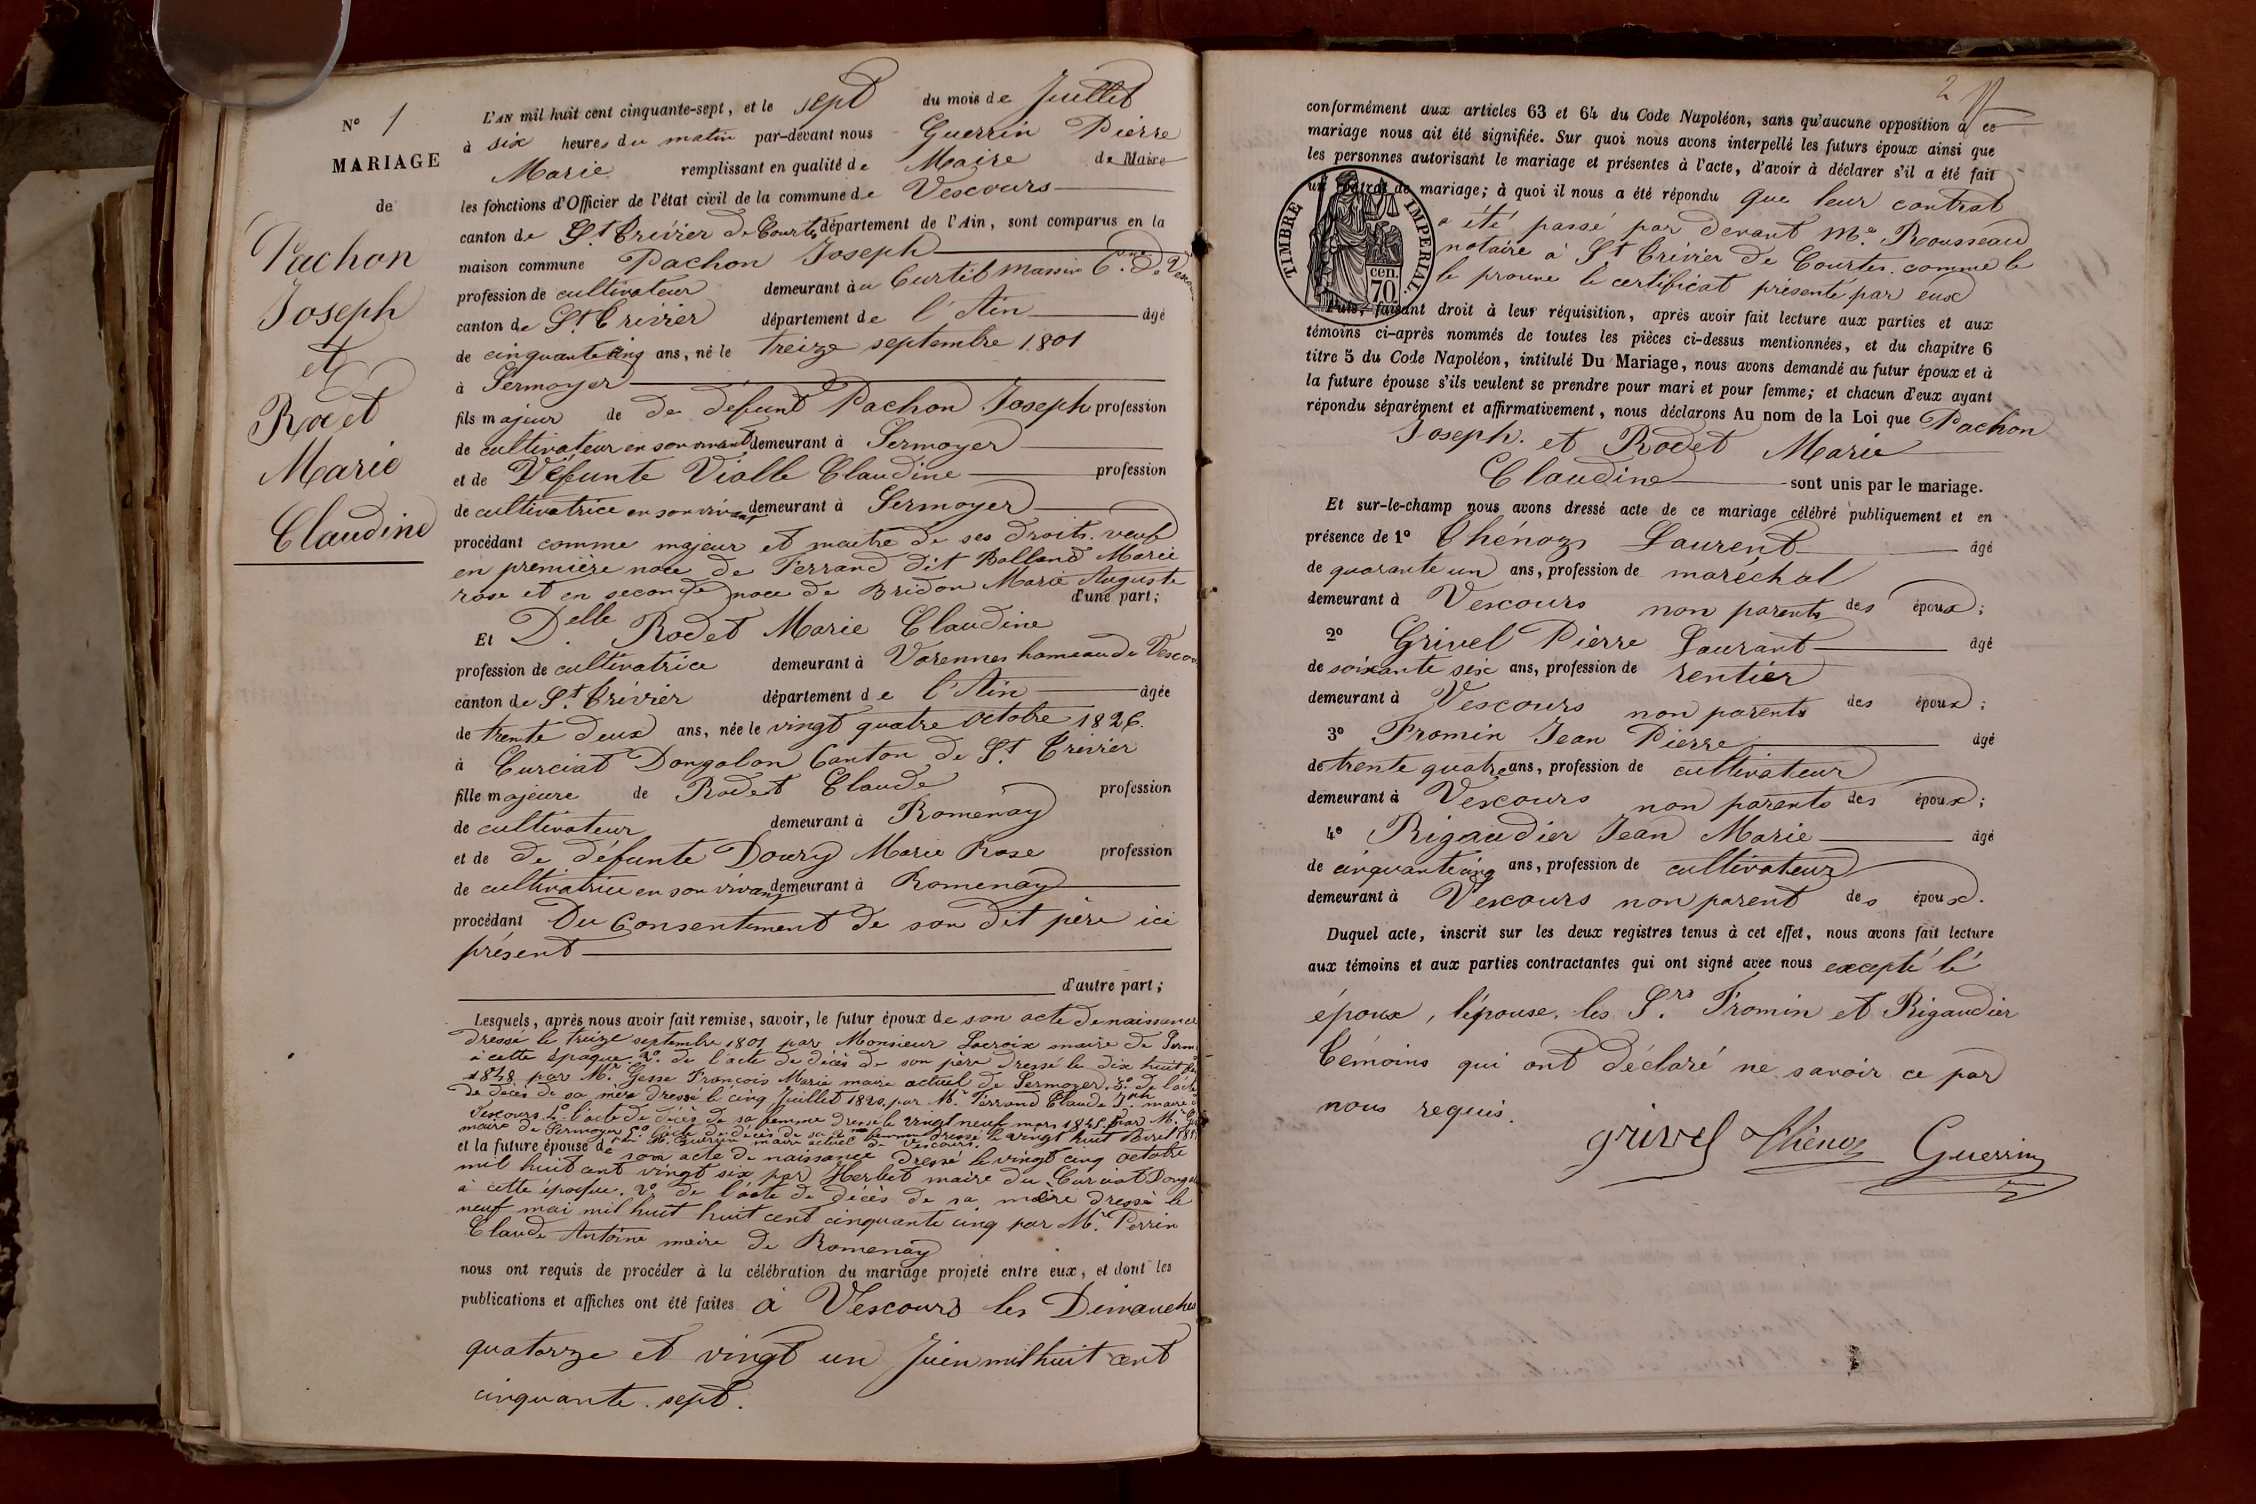 N° 1
MARIAGE
de
Pachon
Joseph
et
Rodet
Marie
Claudine
L'AN mil huit cent cinquante-sept, et le sept du mois de Juillet
à six heures du matin par-devant nous Guerrin Pierre
Marie remplissant en qualité de Maire de Maire
les fonctions d'Officier de l'état civil de la commune de Vescours
canton de St Trivier de Courtes département de l'Ain, sont comparus en la
maison commune Pachon Joseph
profession de cultivateur demeurant à au Curtil Massin Cne De Vesco
canton de St Trivier département de l'Ain âgé
de cinquante cinq ans, né le treize septembre 1801
à Sermoyer
fils majeur de de défunt Pachon Joseph profession
de cultivateur en son vivant demeurant à Sermoyer
et de Défunte Vialle Claudine profession
de cultivatrice en son vivant demeurant à Sermoyer
procédant comme majeur et maitre de ses droits. veuf
en première noce de Ferrand dit Balland Marie
rose et en seconde noce de Bridon Marie Auguste
d'une part;
Et Delle Rodet Marie Claudine
profession de cultivatrice demeurant à Varennes hameau de Vescou
canton de St Trivier département de l'Ain âgée
de trente deux ans, née le vingt quatre octobre 1826.
à Curciat Dongalon Canton de St Trivier
fille majeure de Rodet Claude profession
de cultivateur demeurant à Romenay
et de de défunte Doury Marie Rose profession
de cultivatrice en son vivant demeurant à Romenay
procédant Du Consentement de son dit père ici
présent
d'autre part;
Lesquels, après nous avoir fait remise, savoir, le futur époux de son acte de naissance
dressé le treize septembre 1801 par Monsieur Lacroix maire de Serm
à cette époque. 2° de l'acte de décès de son père dressé le dix huit
1848 par Mr Gesse François Marie maire actuel de Sermoyer. 3° de l'acte
de décès de sa mère dressé le cinq Juillet 1820, par Mr Ferrand Claude Jph maire
Vescours. 4° l'acte de décès de sa femme dressé le vingt neuf mars 1845 par Mr
maire de Sermoyer 5° l'acte de décès de sa 2me femme dressé le vingt huit
et la future épouse de Mr Guerrin maire actuel de Vescours.
son acte de naissance dressé le vingt cinq octobre
mil huit cent vingt six par Herbet maire du Curciat Dongal
à cette époque. 2° de l'acte de décès de sa mère dressé le
neuf mai mil huit huit cent cinquante cinq par Mr Perrin
Claude Antoine maire de Romenay
nous ont requis de procéder à la célébration du mariage projeté entre eux, et dont les
publications et affiches ont été faites à Vescours les Dimanches
quatorze et vingt un Juin mil huit cent
cinquante. sept.
2
conformément aux articles 63 et 64 du Code Napoléon, sans qu'aucune opposition à ce
mariage nous ait été signifiée. Sur quoi nous avons interpellé les futurs époux ainsi que
les personnes autorisant le mariage et présentes à l'acte, d'avoir à déclarer s'il a été fait
un contrat de mariage; à quoi il nous a été répondu que leur contrat
a été passé par devant Me Rousseau
notaire à St Trivier de Courtes. comme le
le prouve le certificat présenté par eux
TIMBRE IMPERIAL.
cen. 70
Puis, faisant droit à leur réquisition, après avoir fait lecture aux parties et aux
témoins ci-après nommés de toutes les pièces ci-dessus mentionnées, et du chapitre 6
titre 5 du Code Napoléon, intitulé Du Mariage, nous avons demandé au futur époux et à
la future épouse s'ils veulent se prendre pour mari et pour femme; et chacun d'eux ayant
répondu séparément et affirmativement, nous déclarons Au nom de la Loi que Pachon
Joseph. et Rodet Marie
Claudine sont unis par le mariage.
Et sur-le-champ nous avons dressé acte de ce mariage célébré publiquement et en
présence de 1° Thénoz Laurent âgé
de quarante un ans, profession de maréchal
demeurant à Vescours non parents des époux;
2° Grivel Pierre Laurant âgé
de soixante six ans, profession de rentier
demeurant à Vescours non parents des époux;
3° Fromin Jean Pierre âgé
de trente quatre ans, profession de cultivateur
demeurant à Vescours non parents des époux;
4° Rigaudier Jean Marie âgé
de cinquante cinq ans, profession de cultivateur
demeurant à Vescours non parent des époux.
Duquel acte, inscrit sur les deux registres tenus à cet effet, nous avons fait lecture
aux témoins et aux parties contractantes qui ont signé avec nous excepté lé
époux, l'épouse. les Srs Fromin et Rigaudier
Témoins qui ont déclaré ne savoir ce par
nous requis.
grivel Thénoz Guerrin